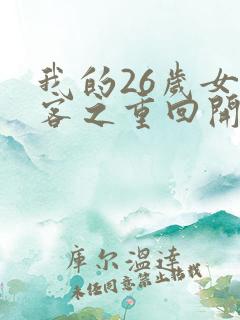 我的26岁女
客之重回开
库尔温达
未经同意禁止转载